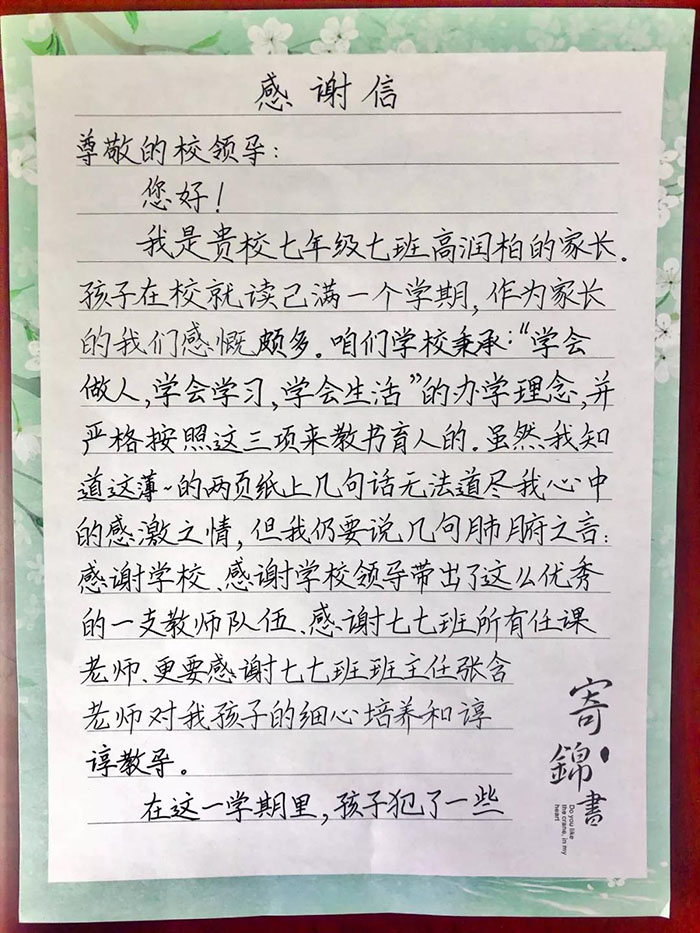 感谢信
尊敬的校领导：
您好！
我是贵校七年级七班高润柏的家长。
孩子在校就读已满一个学期，作为家长
的我们感慨颇多。咱们学校秉承：“学会
做人，学会学习，学会生活”的办学理念，并
严格按照这三项来教书育人的。虽然我知
道这薄~的两页纸上几句话无法道尽我心中
的感激之情，但我仍要说几句肺腑之言：
感谢学校、感谢学校领导带出了这么优秀
的一支教师队伍、感谢七七班所有任课
老师、更要感谢七七班班主任张含
老师对我孩子的细心培养和谆
谆教导。
在这一学期里，孩子犯了一些
寄锦書
Do you like
the crane, in my
heart